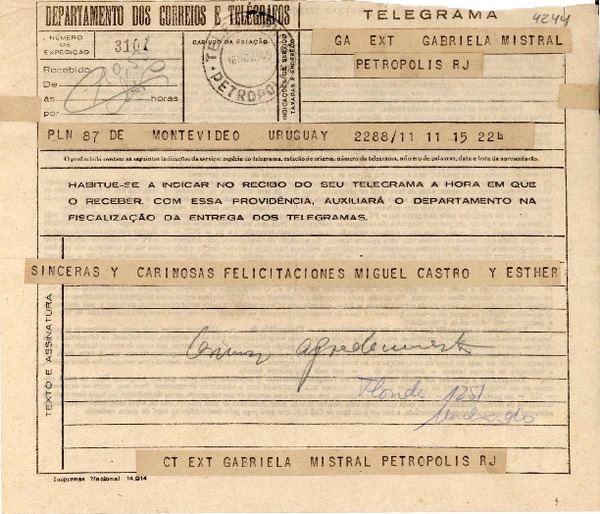 DEPARTAMENTO DOS CORREIOS E TELÉGRAFOS
TELEGRAMA
4244
NÚMERO DE EXPEDIÇÃO
3101
CARIMBO DA ESTAÇÃO
INDICAÇÕES DE SERVIÇO TAXADAS E ENDEREÇO
GA EXT GABRIELA MISTRAL
PETROPOLIS RJ
Recebido
De
às horas
por
PETROPOLIS
PLN 87 DE MONTEVIDEO URUGUAY 2288/11 11 15 22h
O preâmbulo contem as seguintes indicações de serviço: espécie do telegrama, estação de origem, número do telegrama, número de palavras, data e hora da apresentação.
HABITUE-SE A INDICAR NO RECIBO DO SEU TELEGRAMA A HORA EM QUE
O RECEBER. COM ESSA PROVIDÊNCIA, AUXILIARÁ O DEPARTAMENTO NA
FISCALIZAÇÃO DA ENTREGA DOS TELEGRAMAS.
TEXTO E ASSINATURA
SINCERAS Y CARINOSAS FELICITACIONES MIGUEL CASTRO Y ESTHER
CT EXT GABRIELA MISTRAL PETROPOLIS RJ
Imprensa Nacional 14.014